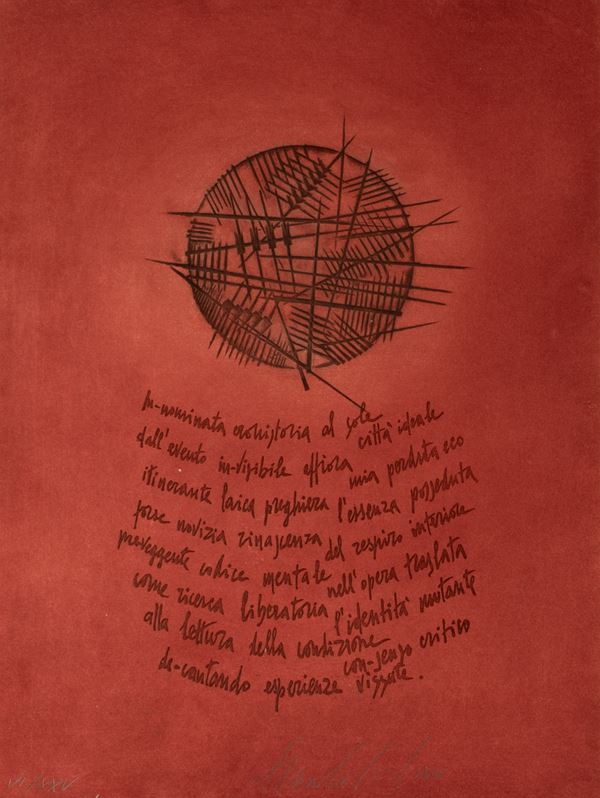 In-nominata erohistoria al sole città ideale
dall'evento in-visibile affiora mia perduta eco
itinerante laica preghiera l'essenza posseduta
forse novizia rinascenza del respiro interiore
preveggente codice mentale nell'opera traslata
come ricerca liberatoria l'identità mutante
alla lettura della condizione con-senso critico
de-cantando esperienze vissute.